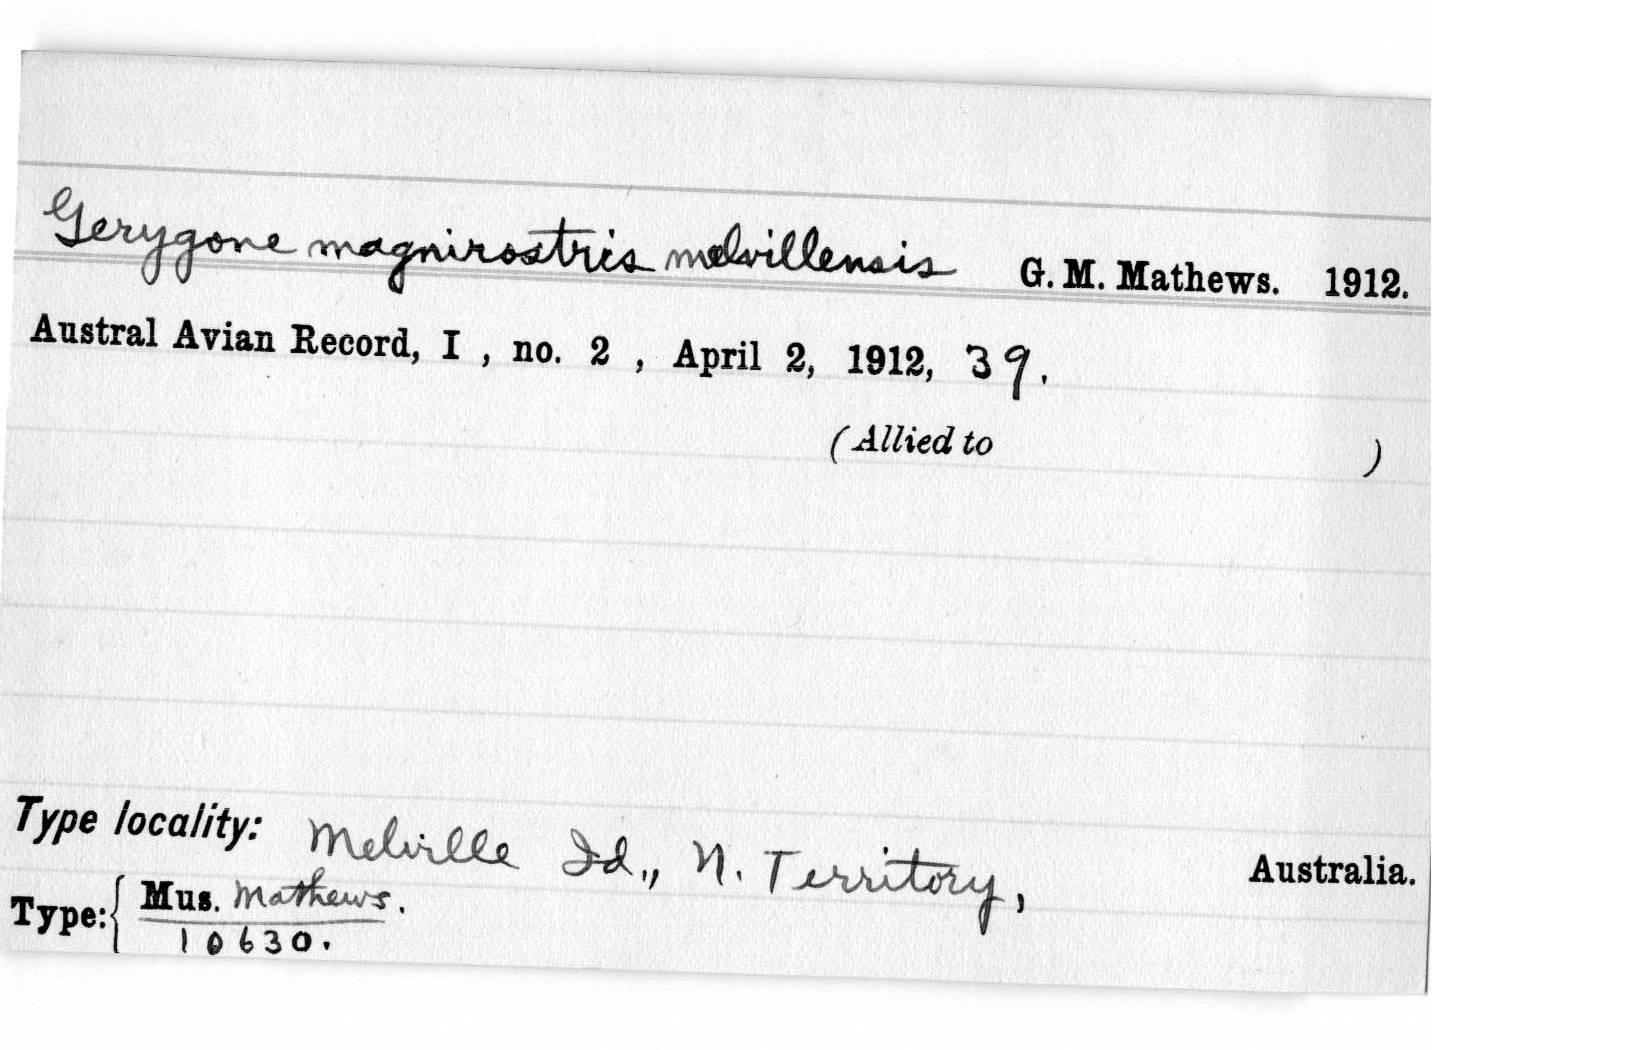 Gerygone magnirostris melvillensis G. M. Mathews. 1912.
Austral Avian Record, I , no. 2 , April 2, 1912, 39.
(Allied to )
Type locality: Melville Id., N. Territory, Australia.
Type: { Mus. Mathews.
10630.